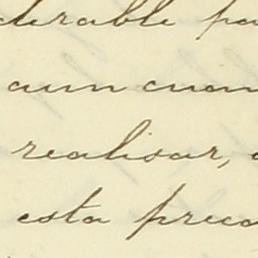 derable pa
aun cuan
realisar,
esta preca